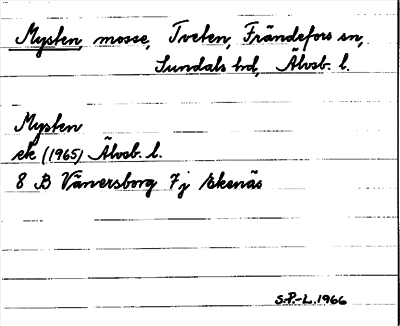 Mysten, mosse, Tveten, Frändefors sn,
Sundals hd, Älvsb. l.
Mysten
ek (1965) Älvsb. l.
8 B Vänersborg 7j Ekenäs
S.P.-L. 1966